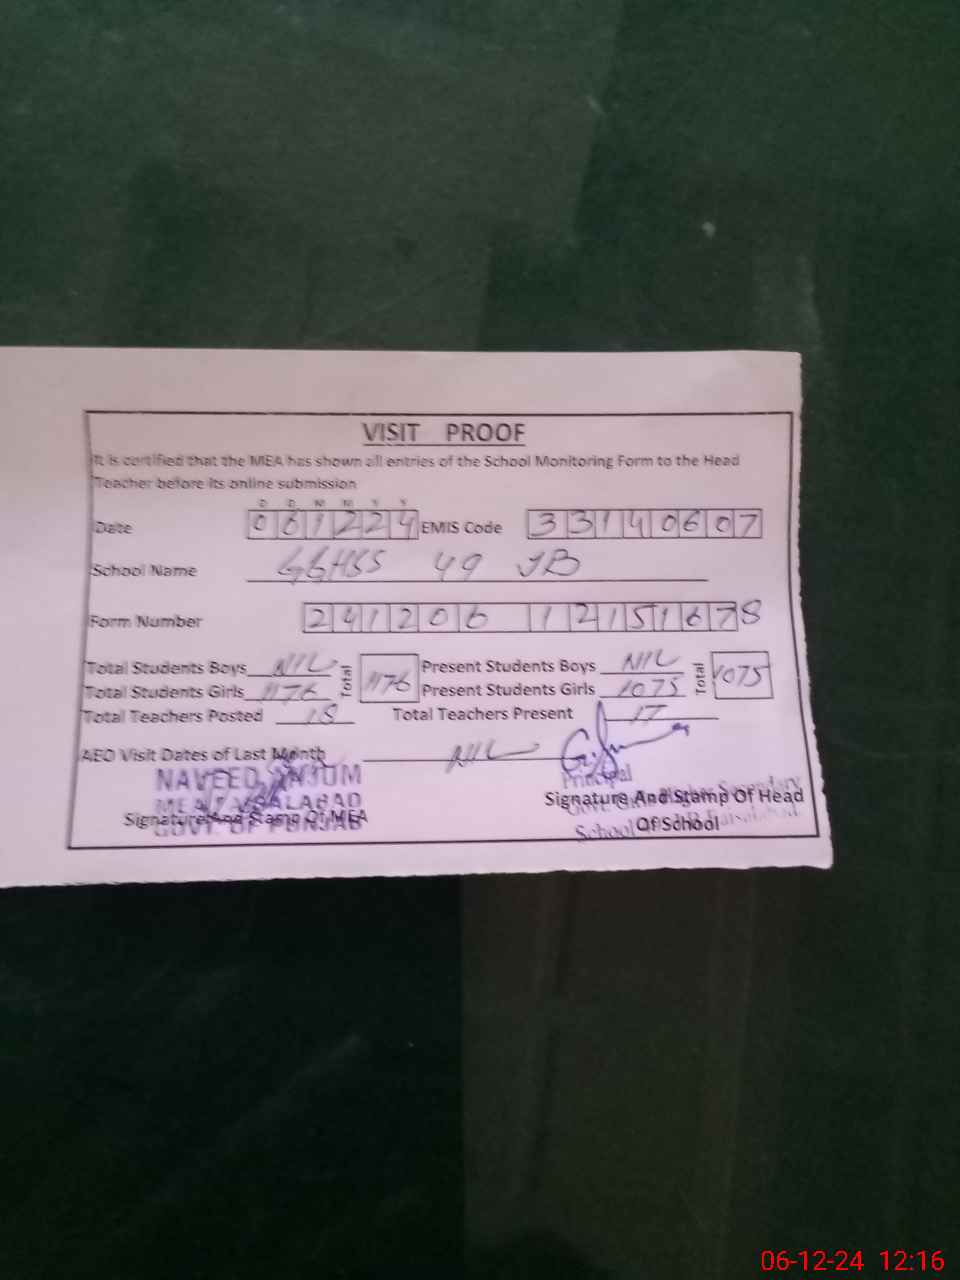 VISIT PROOF
It is certified that the MEA has shown all entries of the School Monitoring Form to the Head
Teacher before its online submission
D D M M Y Y
Date 061224 EMIS Code 33140607
School Name GGHSS 49 JB
Form Number 241206 12151678
Total Students Boys NIL Total 1176 Present Students Boys NIL Total 1075
Total Students Girls 1176 Present Students Girls 1075
Total Teachers Posted 18 Total Teachers Present 17
AEO Visit Dates of Last Month NIL
NAVEED ANJUM
MEA FAISALABAD
GOVT. OF PUNJAB
Signature And Stamp Of MEA
Principal
Signature And Stamp Of Head
Of School
06-12-24 12:16